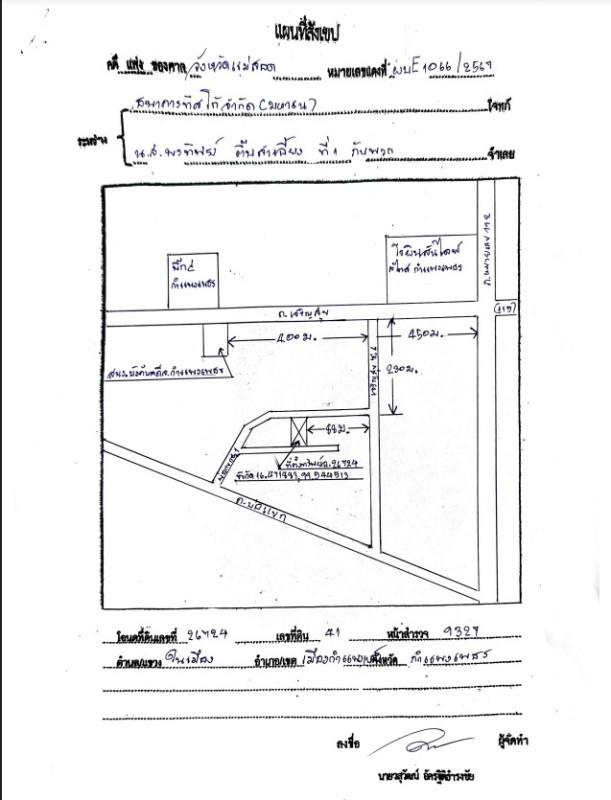 แผนที่สังเขป
คดี แพ่ง ของศาล จังหวัดแม่สอด หมายเลขแดงที่ ผบE1066/2567
ธนาคารทิสโก้ จำกัด (มหาชน) โจทก์
ระหว่าง
น.ส. พรทิพย์ ที่ 1 กับพวก จำเลย
บิ๊กซี
กำแพงเพชร
โรบินสันไลฟ์
สไตล์ กำแพงเพชร
ถ.หมายเลข 112
ถ.เจริญสุข
(112)
400 ม.
450 ม.
230 ม.
สนง.บังคับคดีจ.กำแพงเพชร
88ม.
ที่ตั้งทรัพย์ฉ.26724
พิกัด 16.471993,99.544513
โฉนดที่ดินเลขที่ 26724 เลขที่ดิน 41 หน้าสำรวจ 9327
ตำบล/แขวง ในเมือง อำเภอ/เขต เมืองกำแพงเพชร จังหวัด กำแพงเพชร
ลงชื่อ ผู้จัดทำ
นายวสุวัฒน์ อัครฐิติดำรงชัย